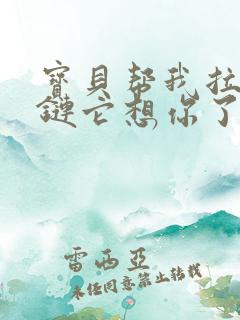 寶貝帮我拉
鏈它想你了
雷西亞
未经同意禁止转载